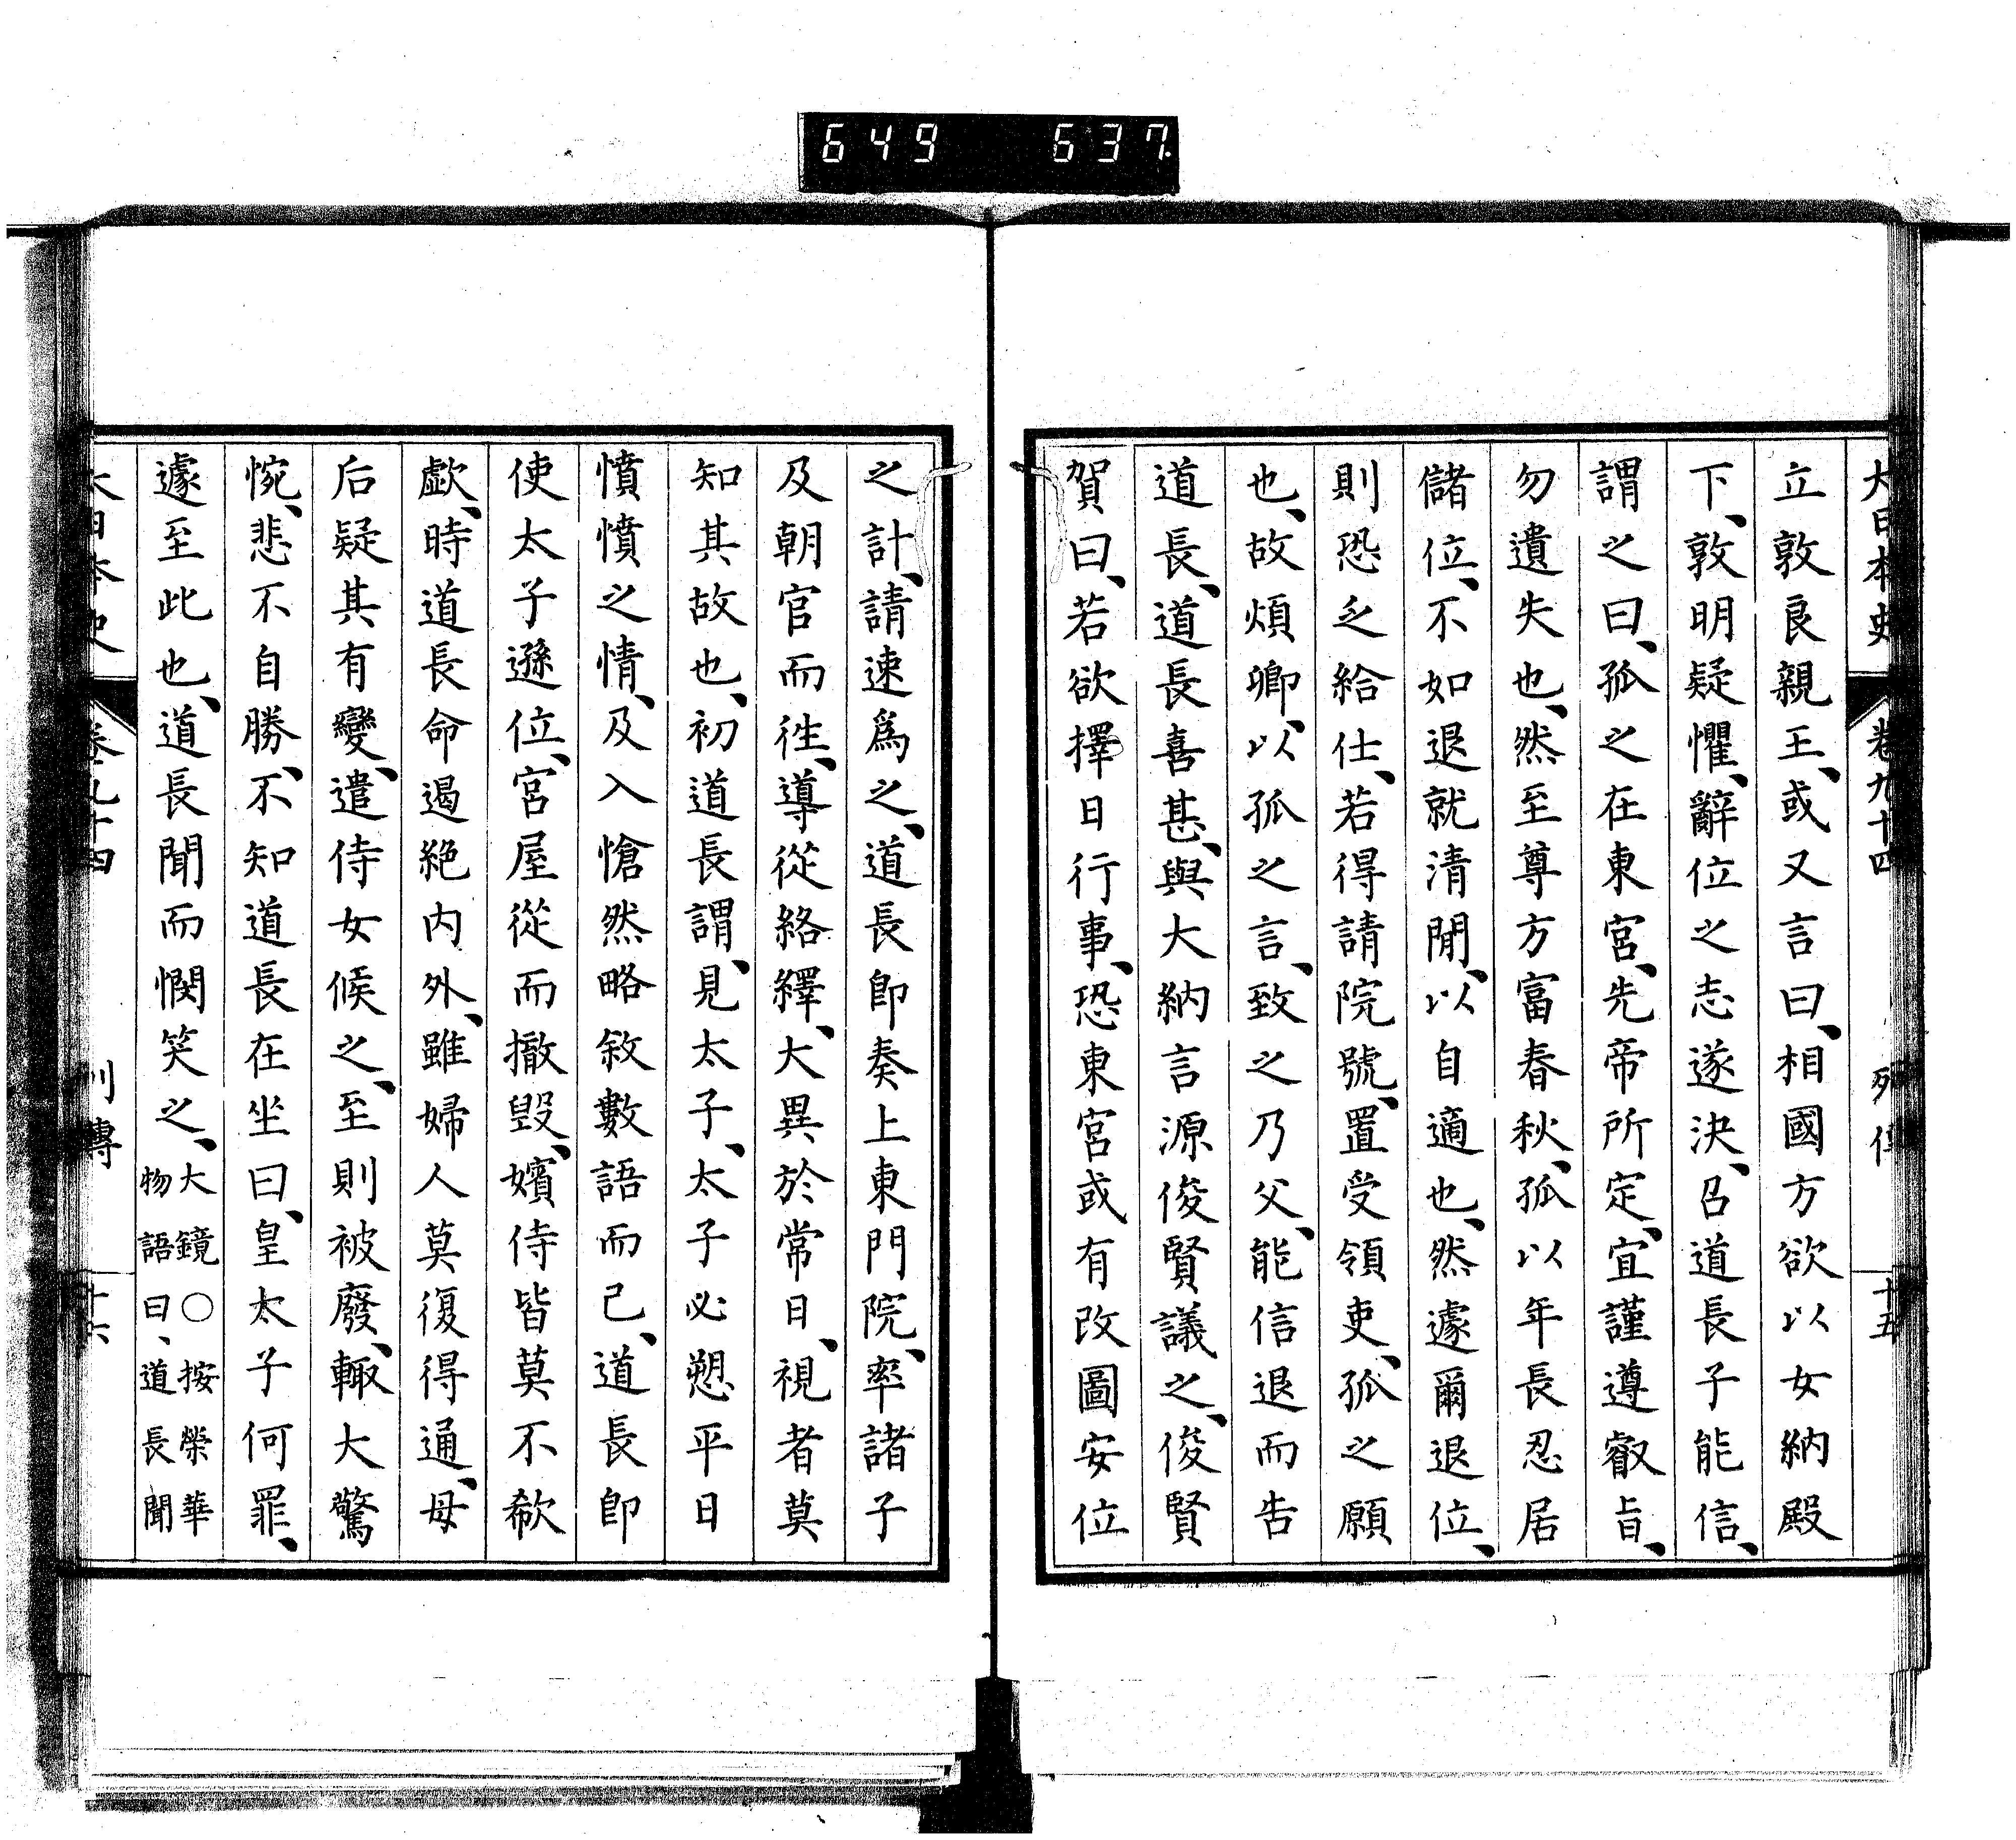 649 637.
大日本史 卷九十四 列傳 十五
立敦良親王、或又言曰、相國方欲以女納殿
下、敦明疑懼、辭位之志遂決、召道長子能信、
謂之曰、孤之在東宮、先帝所定、宜謹遵叡旨、
勿遺失也、然至尊方富春秋、孤以年長忍居
儲位、不如退就清閒、以自適也、然遽爾退位、
則恐乏給仕、若得請院號、置受領吏、孤之願
也、故煩卿、以孤之言、致之乃父、能信退而告
道長、道長喜甚、與大納言源俊賢議之、俊賢
賀曰、若欲擇日行事、恐東宮或有改圖安位
之計、請速爲之、道長卽奏上東門院、率諸子
及朝官而徃、導從絡繹、大異於常日、視者莫
知其故也、初道長謂、見太子、太子必愬平日
憤憤之情、及入愴然略敘數語而已、道長卽
使太子遜位、宮屋從而撤毀、嬪侍皆莫不欷
歔、時道長命遏絕内外、雖婦人莫復得通、母
后疑其有變、遣侍女候之、至則被廢、輙大驚
惋、悲不自勝、不知道長在坐曰、皇太子何罪、
遽至此也、道長聞而憫笑之、大鏡○按榮華
物語曰、道長聞
大日本史 卷九十四 列傳 十六